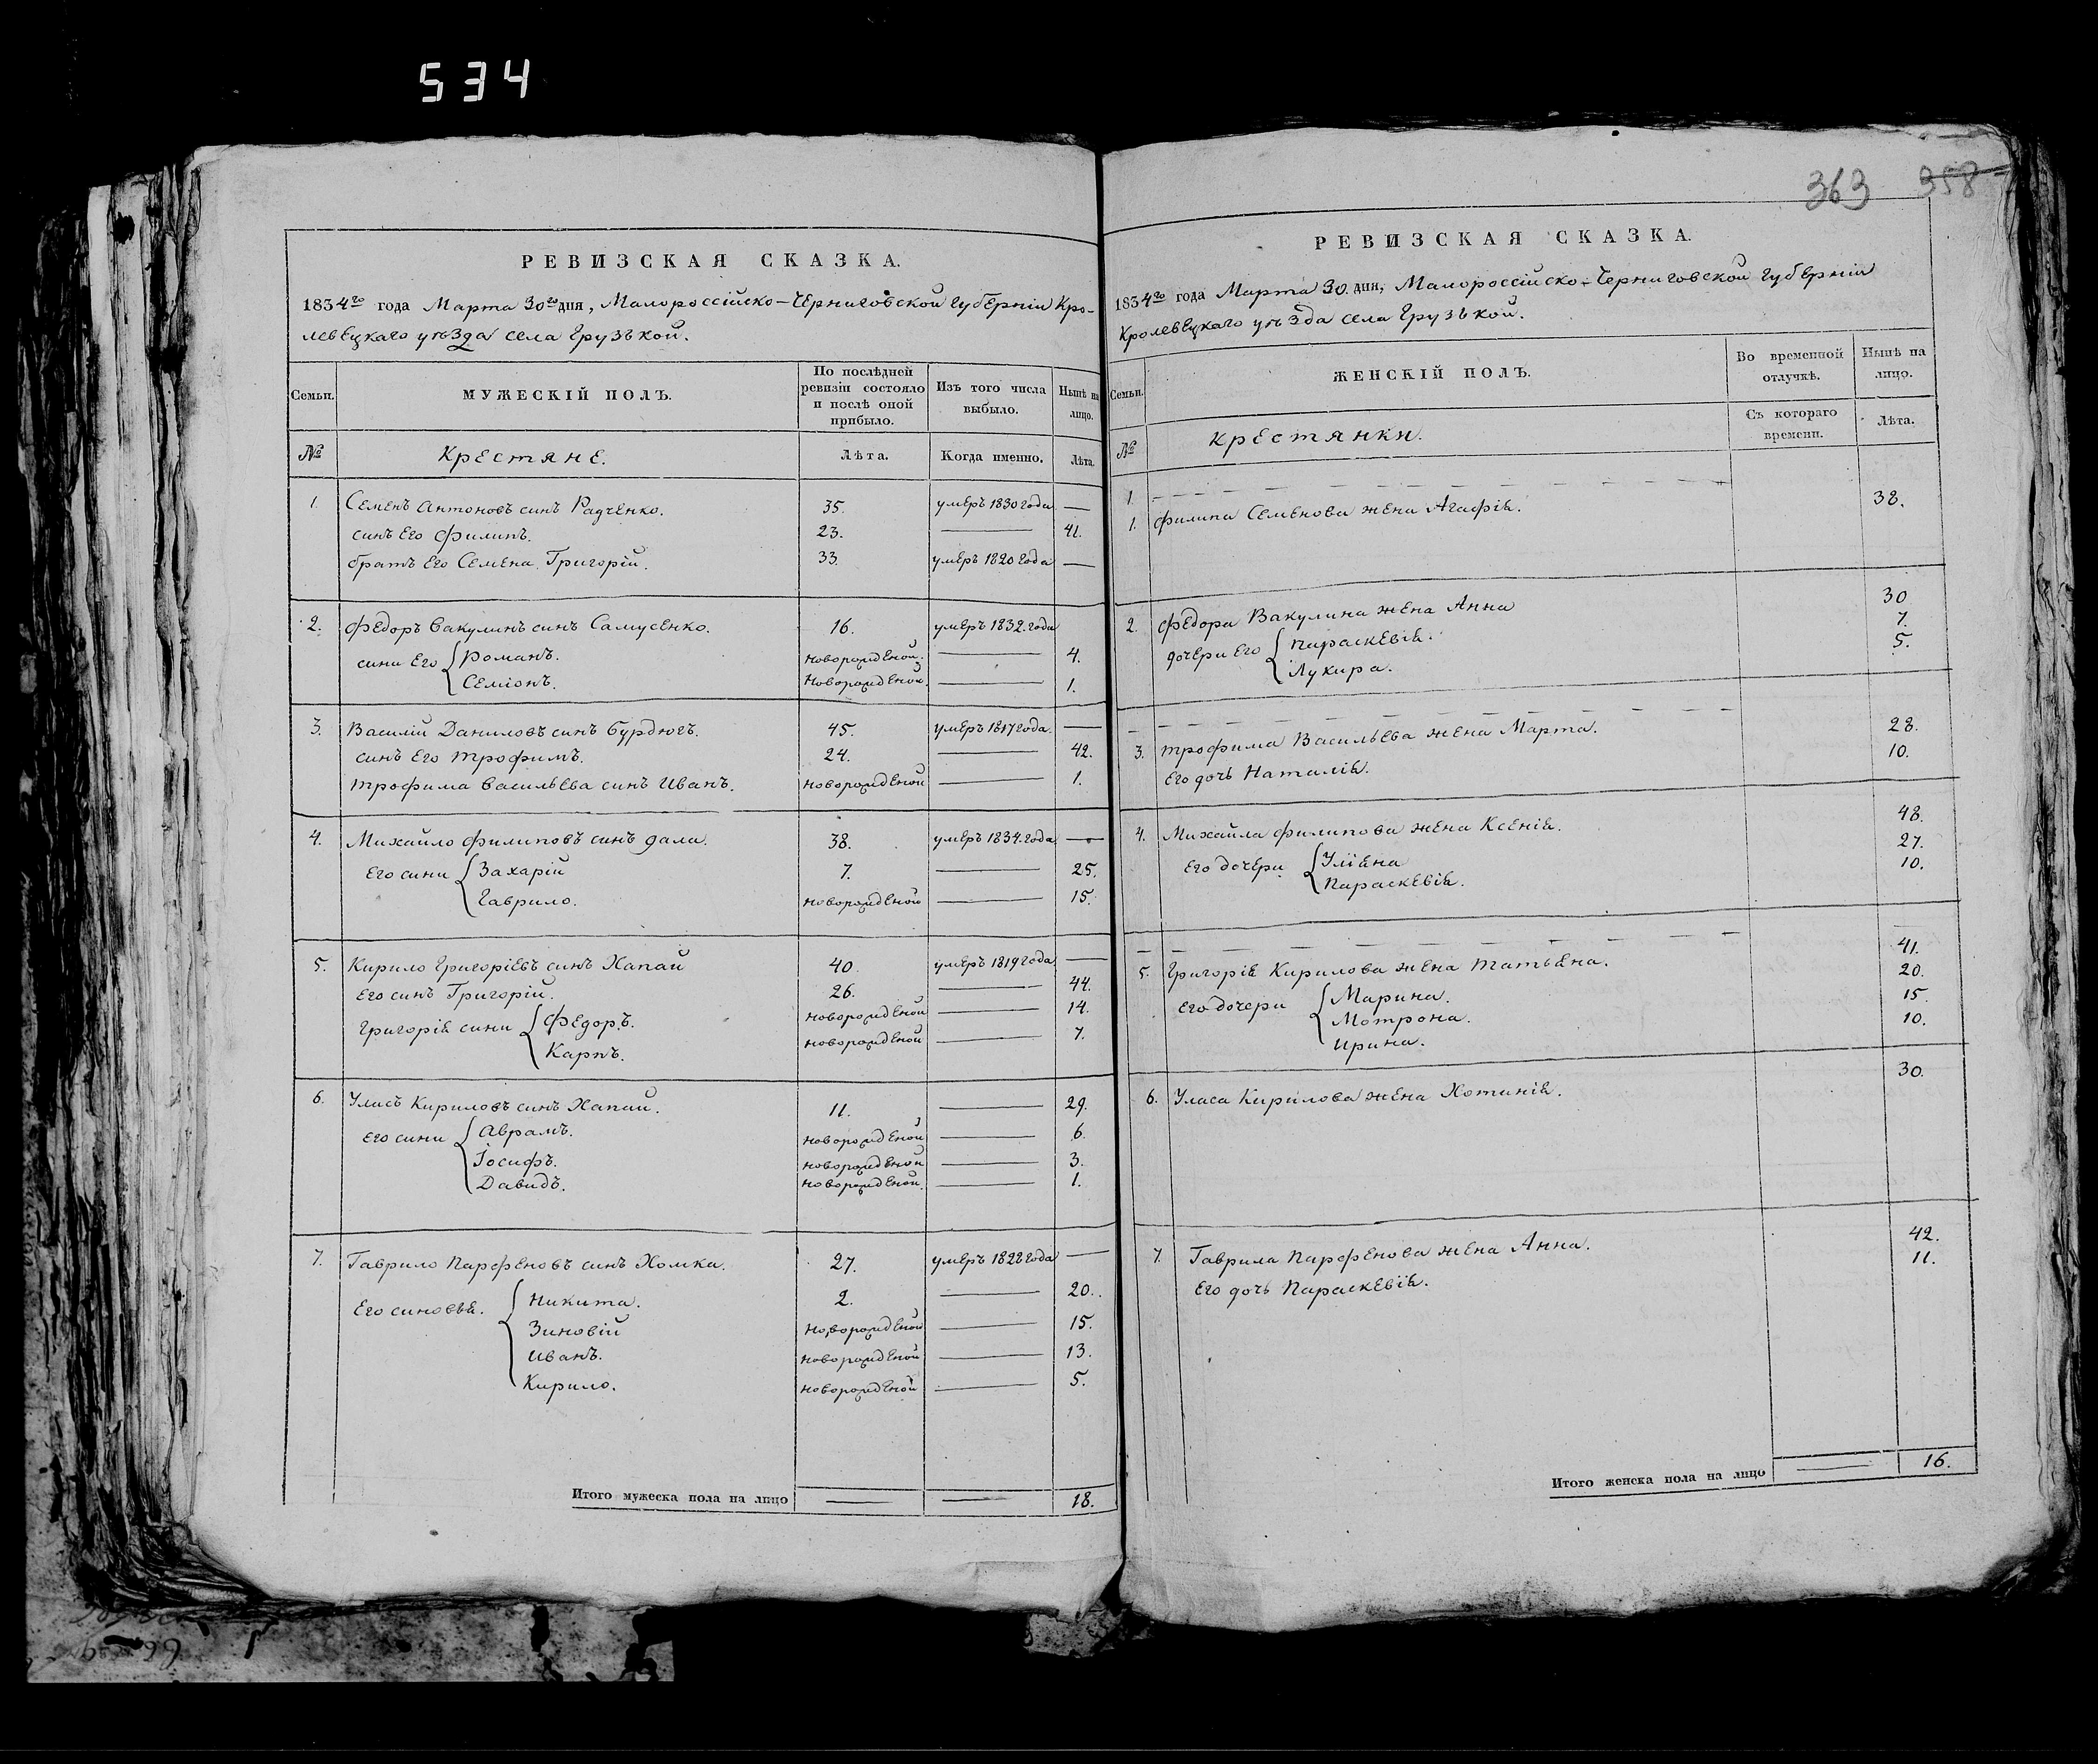 534
363 358
РЕВИЗСКАЯ СКАЗКА.
1834го года Марта 30го дня, Малороссійско-Черниговской Губерніи Кро-
левецкаго уѣзда села Грузькой.
Семьи. МУЖЕСКІЙ ПОЛЪ. По послѣдней ревизіи состояло и послѣ оной прибыло. Изъ того числа выбыло. Нынѣ на лицо.
№ Крестяне. Лѣта. Когда именно. Лѣта.
1. Семенъ Антоновъ синъ Радченко. 35. умеръ 1830 года —
синъ Его Филипъ. 23. — 41.
братъ Его Семена Григорій. 33. умеръ 1820 года —
2. Федоръ Вакулинъ синъ Самусенко. 16. умеръ 1832. года
сини Его Романъ. новорожденой. — 4.
Семіонъ. новорожденой. — 1.
3. Василій Даниловъ синъ Бурдюгъ. 45. умеръ 1817 года. —
синъ Его Трофимъ. 24. — 42.
Трофима Васильева синъ Иванъ. новорожденой — 1.
4. Михайло Филиповъ синъ Дала. 38. умеръ 1834. года —
Его сини Захарій 7. — 25.
Гаврило. новорожденой — 15.
5. Кирило Григоріевъ синъ Хапай 40. умеръ 1819 года —
Его синъ Григорій. 26. — 44.
Григорія сини Федоръ. новорожденой — 14.
Карпъ. новорожденой — 7.
6. Уласъ Кириловъ синъ Хапай. 11. — 29.
Его сини Аврамъ. новорожденой — 6.
Іосифъ. новорожденой — 3.
Давидъ. новорожденой. — 1.
7. Гаврило Парфеновъ синъ Хомка. 27. умеръ 1828 года —
Его синовья. Никита. 2. — 20.
Зиновій новорожденой — 15.
Иванъ. новорожденой — 13.
Кирило. новорожденой — 5.
Итого мужеска пола на лицо — — 18.
РЕВИЗСКАЯ СКАЗКА.
1834го года Марта 30. дня, Малороссійско-Черниговской Губерніи
Кролевецкаго уѣзда села Грузькой.
Семьи. ЖЕНСКІЙ ПОЛЪ. Во временной отлучкѣ. Нынѣ на лицо.
№ Крестянки. Съ котораго времени. Лѣта.
1. — — —
1. Филипа Семенова жена Агафія. 38.
2. Федора Вакулина жена Анна 30
дочери Его Параскевія. 7.
Лукира. 5.
— — —
3. Трофима Васильева жена Марта. 28.
Его дочь Наталія. 10.
4. Михайла Филипова жена Ксенія. 48.
Его дочери Уліяна 27.
Параскевія. 10.
— — —
5. Григорія Кирилова жена Татьяна. 41.
Его дочери Марина. 20.
Мотрона. 15.
Ирина. 10.
6. Уласа Кирилова жена Хотинія. 30.
7. Гаврила Парфенова жена Анна. 42.
Его дочь Параскевія. 11.
Итого женска пола на лицо — 16.